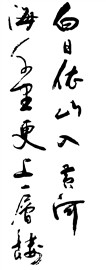 白日依山入黄河
海千里更上一层楼